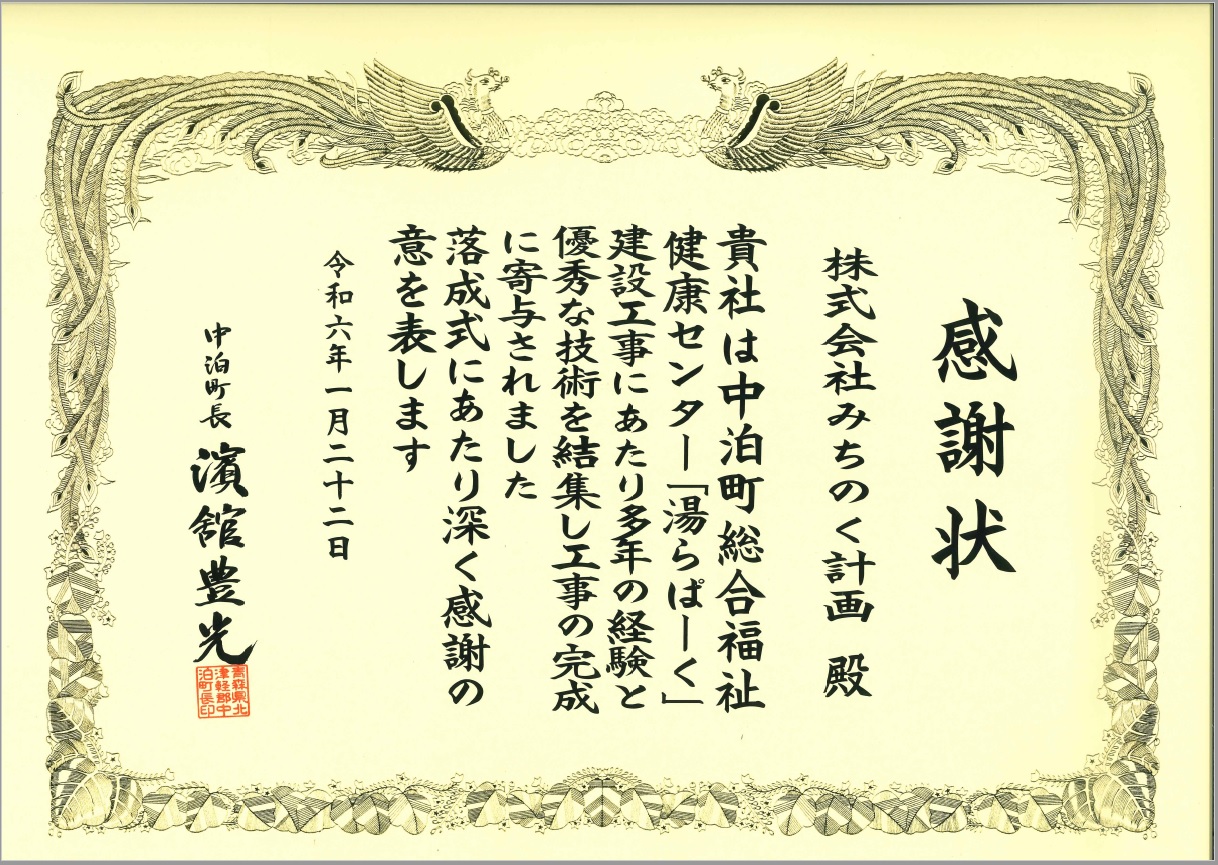 感謝状
株式会社みちのく計画 殿
貴社は中泊町総合福祉
健康センター「湯らぱーく」
建設工事にあたり多年の経験と
優秀な技術を結集し工事の完成
に寄与されました
落成式にあたり深く感謝の
意を表します
令和六年一月二十二日
中泊町長 濱舘豊光
青森県北
津軽郡中
泊町長印